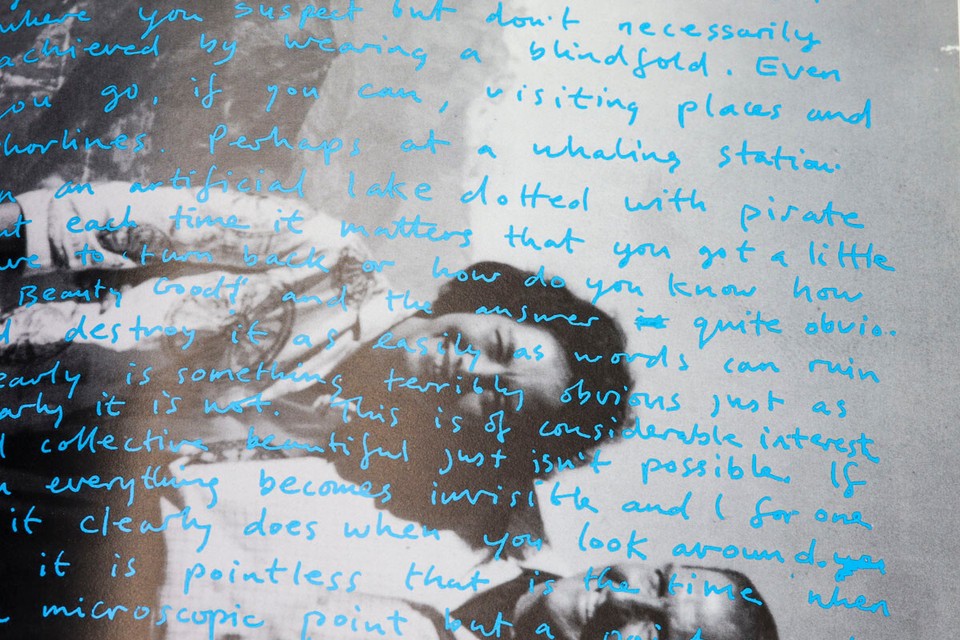 where you suspect but don't necessarily
achieved by wearing a blindfold. Even
you go, if you can, visiting places and
horlines. Perhaps at a whaling station.
n an artificial lake dotted with pirate
ut each time it matters that you got a little
ve to turn back or how do you know how
Beauty Good? and the answer is quite obvio.
d destroy it as easily as words can ruin
early is something terribly obvious just as
arly it is not. This is of considerable interest
d collective beautiful just isn't possible. If
n everything becomes invisible and I for one
it clearly does when you look around. you
it is pointless that is the time when
microscopic point but a